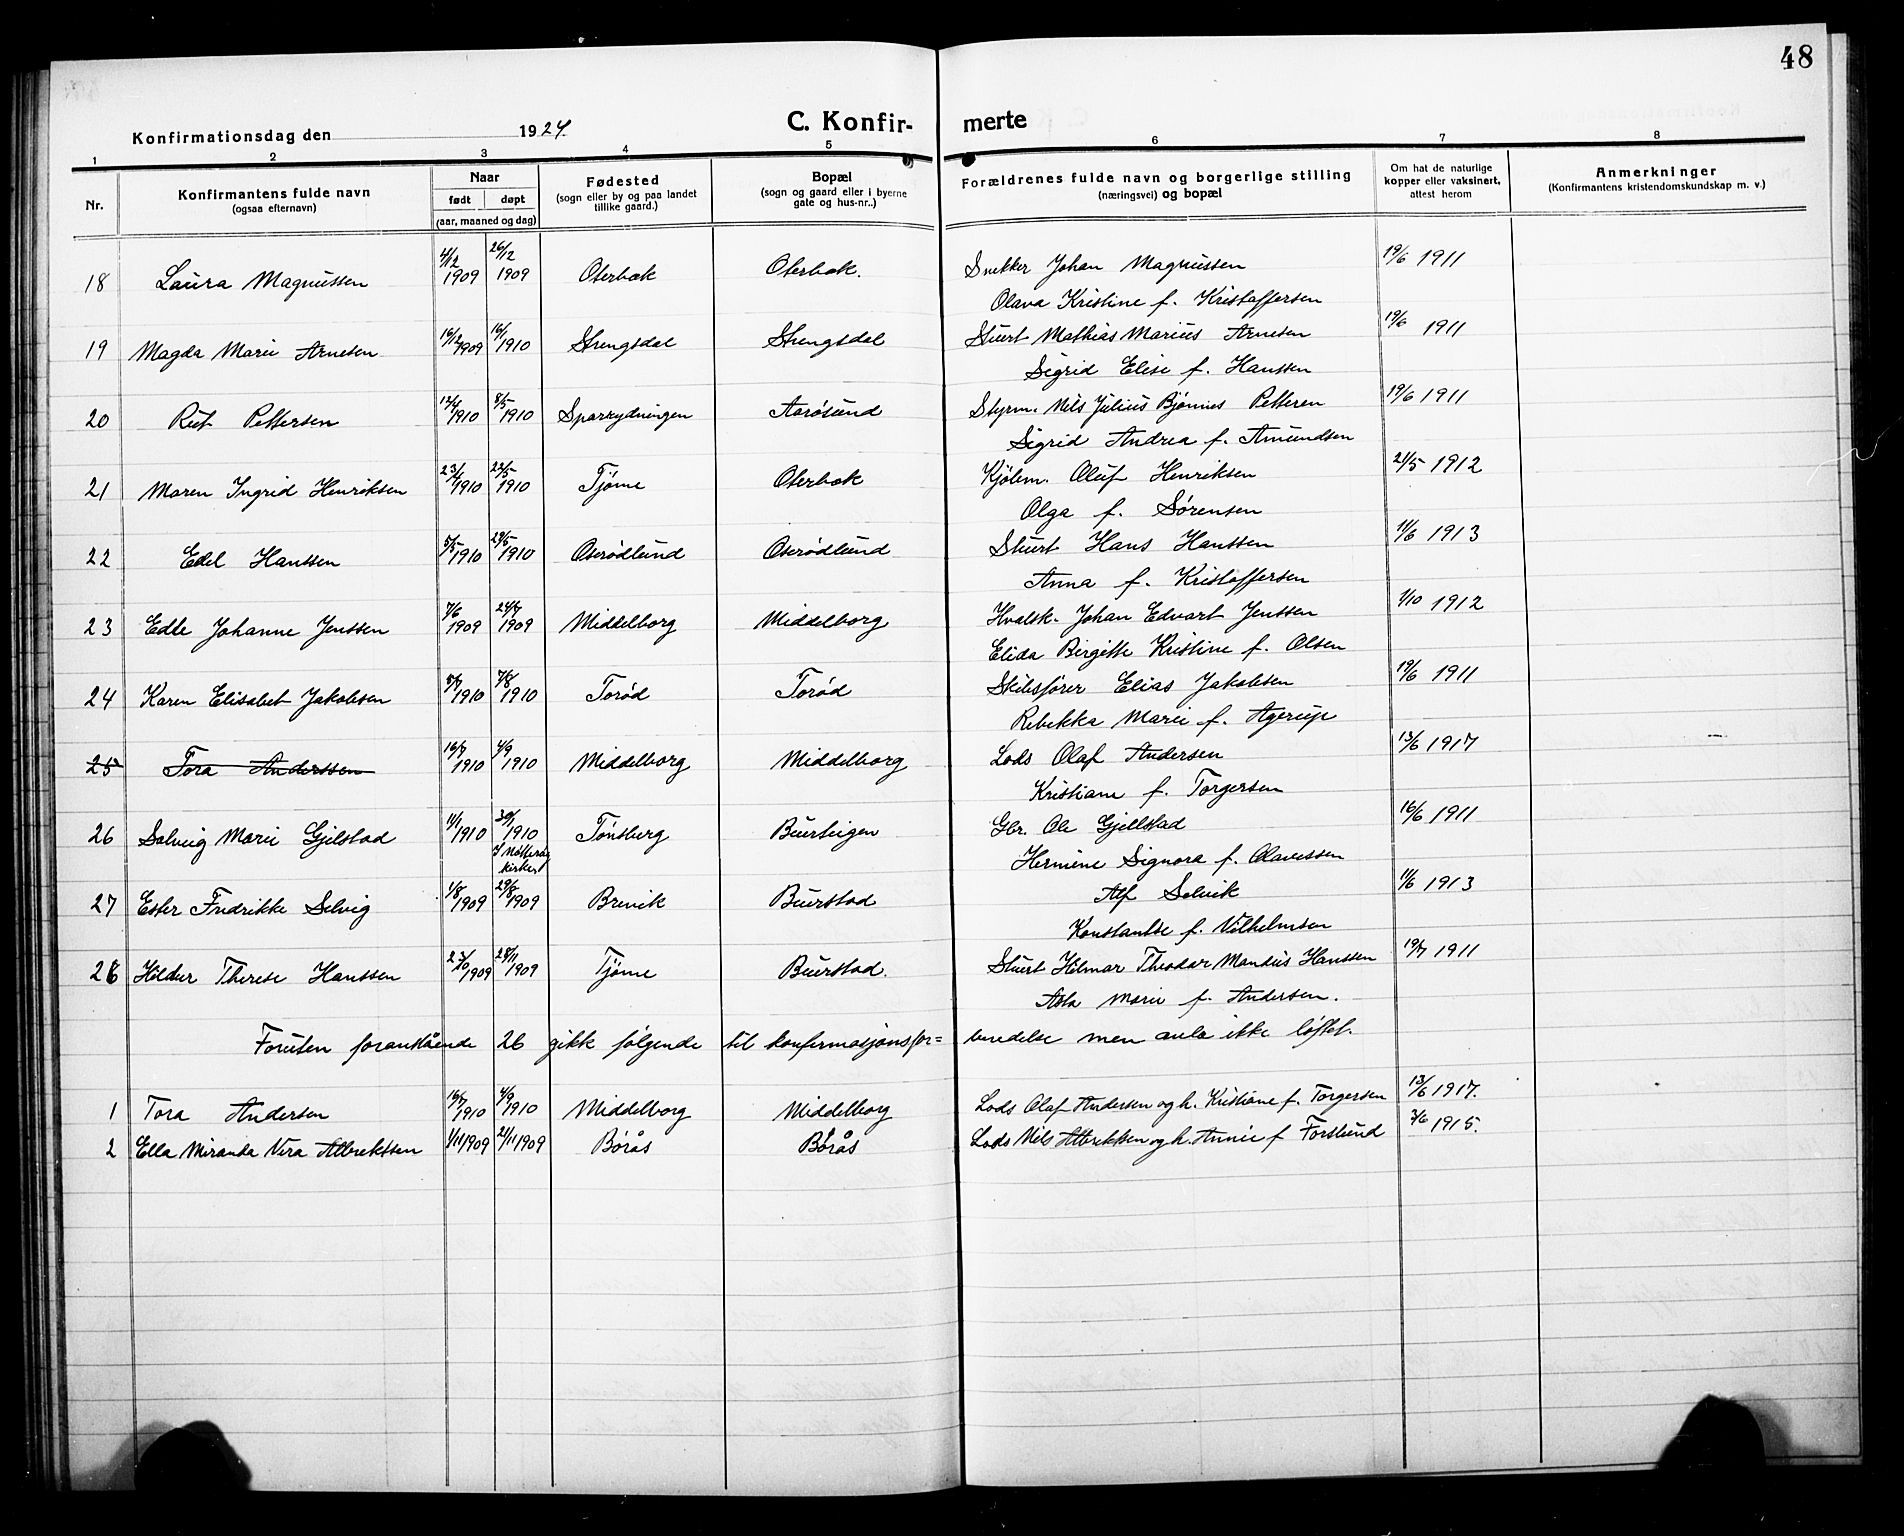 48
Konfirmationsdag den 1924. C. Konfirmerte
1 2 3 4 5 6 7 8
Nr. Konfirmantens fulde navn (ogsaa efternavn) Naar født døpt (aar, maaned og dag) Fødested (sogn eller by og paa landet tillike gaard.) Bopæl (sogn og gaard eller i byerne gate og hus-nr..) Forældrenes fulde navn og borgerlige stilling (næringsvei) og bopæl Om hat de naturlige kopper eller vaksinert, attest herom Anmerkninger (Konfirmantens kristendomskundskap m. v.)
18 Laura Magnussen 4/12 1909 26/12 1909 Oterbæk Oterbæk. Snekker Johan Magnussen 19/6 1911
Olava Kristine f. Kristoffersen
19 Magda Marie Arnesen 16/12 1909 16/1 1910 Strengsdal Strengsdal Stuert Mathias Marius Arnesen 19/6 1911
Sigrid Elise f. Hanssen
20 Rut Pettersen 12/4 1910 8/5 1910 Sparrydningen Aarøsund Styrm. Nils Julius Bjønnes Petteren 19/6 1911
Sigrid Andrea f. Amundsen
21 Maren Ingrid Henriksen 23/4 1910 22/5 1910 Tjøme Oterbæk Kjölem. Oluf Henriksen 21/5 1912
Olga f. Sørensen
22 Edel Hanssen 5/5 1910 29/5 1910 Oserødlund Oserødlund Stuert Hans Hanssen 11/6 1913
Anna f. Kristoffersen
23 Edle Johanne Jenssen 7/6 1909 24/7 1909 Middelborg Middelborg Hvalsk. Johan Edvart Jenssen 1/10 1912
Elida Birgitte Kristine f. Olsen
24 Karen Elisabet Jakobsen 5/7 1910 7/8 1910 Torød Torød Skibsfører Elias Jakobsen 19/6 1911
Rebekka Marie f. Agerup
25 Tora Anderssen 16/7 1910 4/9 1910 Middelborg Middelborg Lods Olaf Andersen 13/6 1917
Kristiane f. Torgersen
26 Solveig Marie Gjelstad 11/1 1910 30/1 1910 I Nøtterøy kirke Tønsberg Buerteigen Gbr. Ole Gjellstad 16/6 1911
Hermine Signora f. Olavessen
27 Ester Fredrikke Selvig 1/8 1909 29/8 1909 Brevik Buerstad Alf Selvik 11/6 1913
Konstantse f. Vilhelmsen
28 Hildur Therese Hanssen 23/10 1909 28/11 1909 Tjøme Buerstad. Stuert Hilmar Theodor Mandius Hanssen 19/7 1911
Asta Marie f. Andersen.
Foruten foranstående 26 gikk følgende til konfirmasjonsfor= beredelse men avla ikke løftet.
1 Tora Andersen 16/7 1910 4/9 1910 Middelborg Middelborg Lods Olaf Andersen og h. Kristiane f. Torgersen 13/6 1917.
2 Ella Miranda Vera Albrektsen 1/11 1909 21/11 1909 Børås Børås Lods Nils Albrektsen og h. Annie f Forslund 3/6 1915.